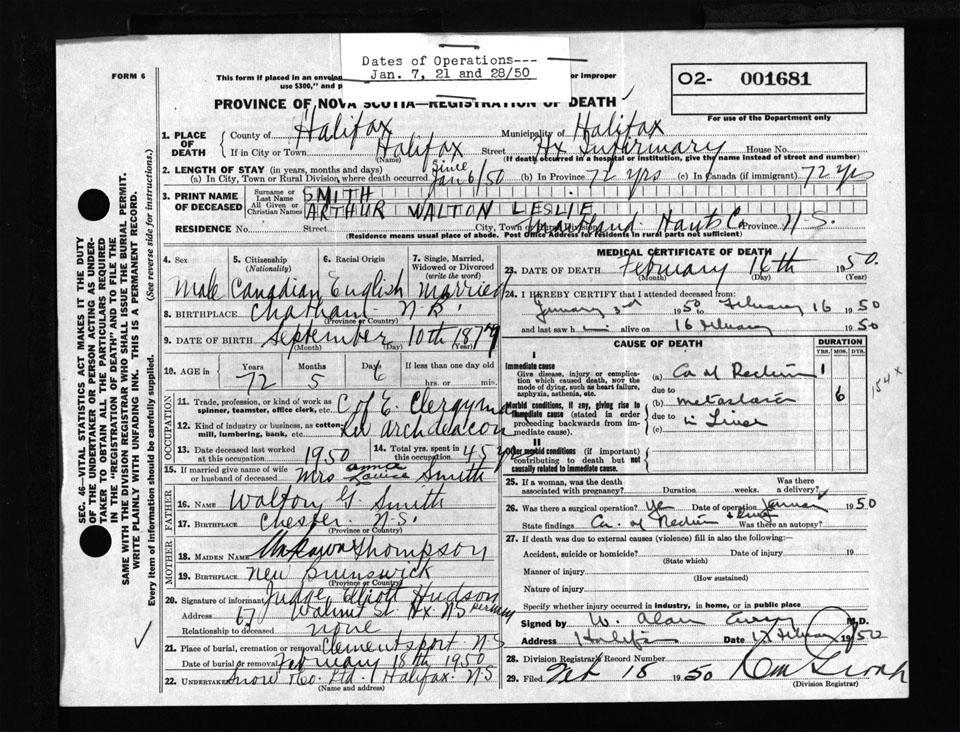 Dates of Operations---
Jan. 7, 21 and 28/50
FORM 6
This form if placed in an envelop
or improper
use $300," and p
O2- 001681
For use of the Department only
PROVINCE OF NOVA SCOTIA—REGISTRATION OF DEATH
1. PLACE OF DEATH
County of Halifax Municipality of Halifax
If in City or Town Halifax Street Hx Infirmary House No.
(Name) (If death occurred in a hospital or institution, give the name instead of street and number)
2. LENGTH OF STAY (in years, months and days)
(a) In City, Town or Rural Division where death occurred Since Jan 6/50 (b) In Province 72 yrs (c) In Canada (if immigrant) 72 yrs
3. PRINT NAME OF DECEASED
Surname or Last Name SMITH
All Given or Christian Names ARTHUR WALTON LESLIE
RESIDENCE No. Street City, Town Maitland Hants Co Province N.S.
(Residence means usual place of abode. Post Office Address for residents in rural parts not sufficient)
4. Sex
Male
5. Citizenship (Nationality)
Canadian
6. Racial Origin
English
7. Single, Married, Widowed or Divorced (write the word)
Married
8. BIRTHPLACE Chatham N.B.
(Province or Country)
9. DATE OF BIRTH September 10th 1877
(Month) (Day) (Year)
10. AGE in Years 72 Months 5 Days 6 If less than one day old
hrs. or min.
OCCUPATION
11. Trade, profession or kind of work as spinner, teamster, office clerk, etc. C of E. Clergyman
12. Kind of industry or business, as cotton mill, lumbering, bank, etc. archdeacon
13. Date deceased last worked at this occupation 1950
14. Total yrs. spent in this occupation 45
15. If married give name of wife or husband of deceased Mrs Anna Louise Smith
FATHER
16. NAME Walton G. Smith
17. BIRTHPLACE Chester N.S.
(Province or Country)
MOTHER
18. MAIDEN NAME Unknown Thompson
19. BIRTHPLACE New Brunswick
(Province or Country)
20. Signature of informant Judge Elliott Hudson
Address 67 Walnut St. Hx NS
Relationship to deceased none
21. Place of burial, cremation or removal Clementsport N.S
Date of burial or removal February 18th 1950
22. Undertaker Snow & Co. Ltd. Halifax. N.S
(Name and address)
MEDICAL CERTIFICATE OF DEATH
23. DATE OF DEATH February 16th 1950.
(Month) (Day) (Year)
24. I HEREBY CERTIFY that I attended deceased from:
January 3rd 1950 to February 16 1950
and last saw him alive on 16 February 1950
CAUSE OF DEATH
DURATION
YRS. MOS. DYS.
I
Immediate cause
Give disease, injury or complication which caused death, NOT the mode of dying, such as heart failure, asphyxia, asthenia, etc.
(a) Ca of Rectum 1
due to
Morbid conditions, if any, giving rise to immediate cause (stated in order proceeding backwards from immediate cause).
(b) metastasis 6
due to
(c) in Liver
154 x
II
Other morbid conditions (if important) contributing to death but not causally related to immediate cause.
25. If a woman, was the death associated with pregnancy? Duration weeks. Was there a delivery?
26. Was there a surgical operation? Yes Date of operation January 1950
State findings Ca. of Rectum & Liver Was there an autopsy?
27. If death was due to external causes (violence) fill in also the following:—
Accident, suicide or homicide? Date of injury 19
(State which)
Manner of injury
(How sustained)
Nature of injury
Specify whether injury occurred in industry, in home, or in public place
Signed by W. Alan M.D.
Address Halifax Date February 1950
28. Division Registrar's Record Number
29. Filed Feb 18 1950
(Division Registrar)
SEC. 46—VITAL STATISTICS ACT MAKES IT THE DUTY
OF THE UNDERTAKER OR PERSON ACTING AS UNDERTAKER
TO OBTAIN ALL THE PARTICULARS REQUIRED
IN THE "REGISTRATION OF DEATH" AND TO FILE THE
SAME WITH THE DIVISION REGISTRAR WHO SHALL ISSUE THE BURIAL PERMIT.
WRITE PLAINLY WITH UNFADING INK. THIS IS A PERMANENT RECORD.
Every item of information should be carefully supplied. (See reverse side for instructions.)